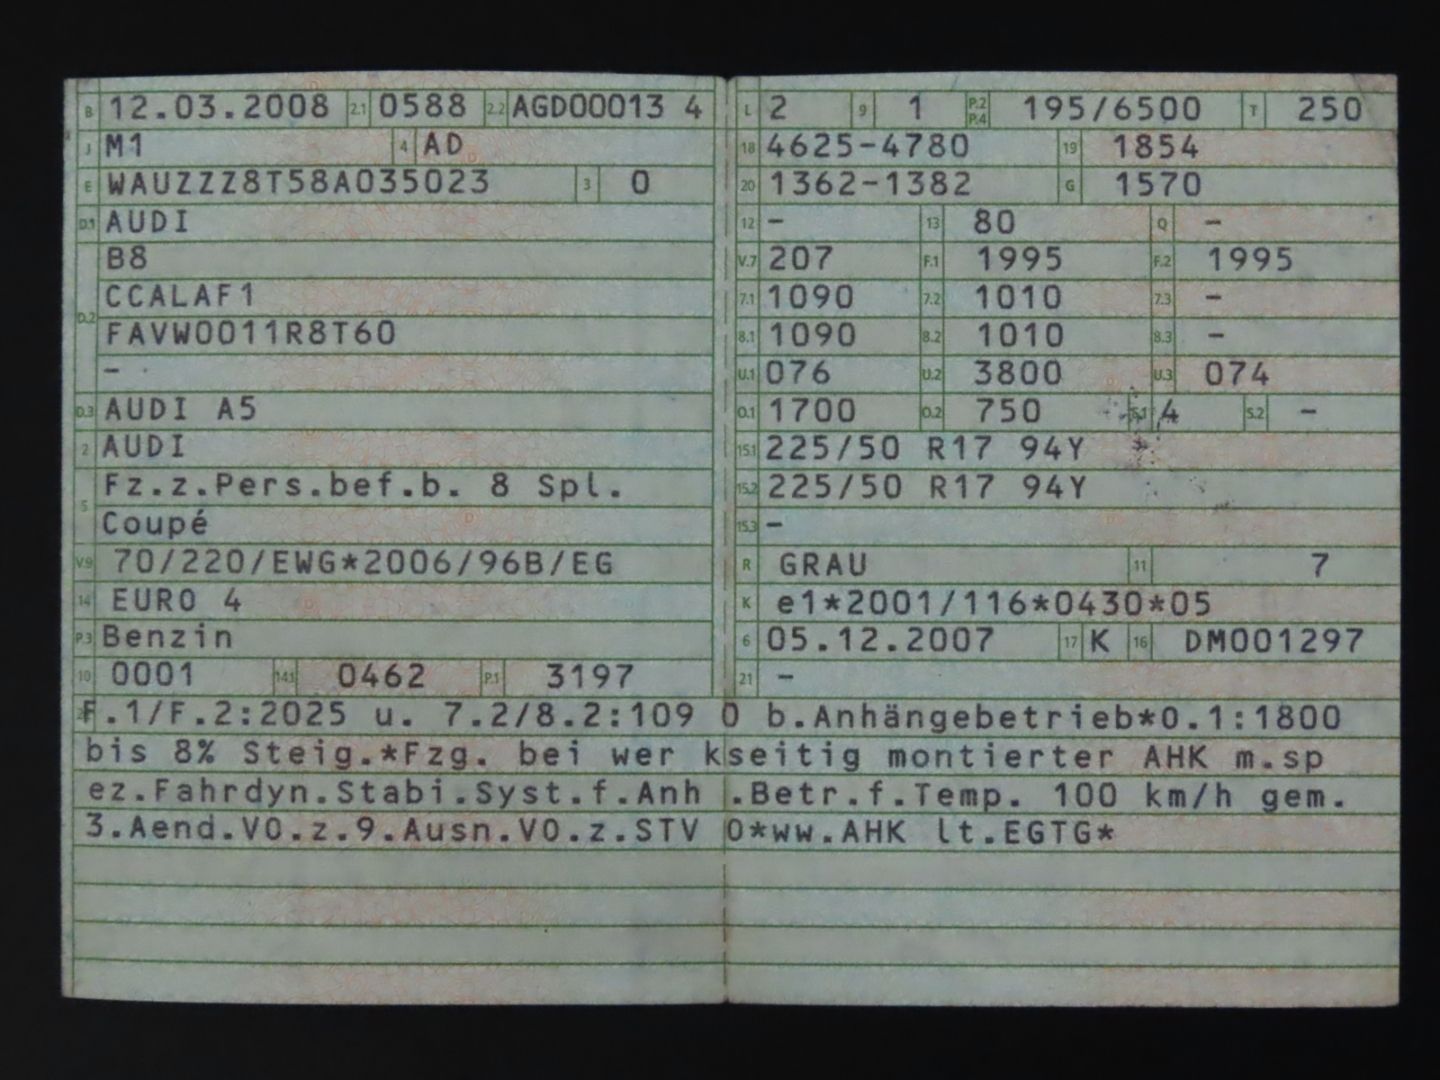 B 12.03.2008 2.1 0588 2.2 AGD00013 4
J M1 4 AD
E WAUZZZ8T58A035023 3 0
D.1 AUDI
B8
D.2 CCALAF1
FAVW0011R8T60
-
D.3 AUDI A5
2 AUDI
5 Fz.z.Pers.bef.b. 8 Spl.
Coupé
V.9 70/220/EWG*2006/96B/EG
14 EURO 4
P.3 Benzin
10 0001 14.1 0462 P.1 3197
L 2 9 1 P.2 P.4 195/6500 T 250
18 4625-4780 19 1854
20 1362-1382 G 1570
12 - 13 80 Q -
V.7 207 F.1 1995 F.2 1995
7.1 1090 7.2 1010 7.3 -
8.1 1090 8.2 1010 8.3 -
U.1 076 U.2 3800 U.3 074
O.1 1700 O.2 750 S.1 4 S.2 -
15.1 225/50 R17 94Y
15.2 225/50 R17 94Y
15.3 -
R GRAU 11 7
K e1*2001/116*0430*05
6 05.12.2007 17 K 16 DM001297
21 -
F.1/F.2:2025 u. 7.2/8.2:109 0 b.Anhängebetrieb*O.1:1800
bis 8% Steig.*Fzg. bei wer kseitig montierter AHK m.sp
ez.Fahrdyn.Stabi.Syst.f.Anh .Betr.f.Temp. 100 km/h gem.
3.Aend.VO.z.9.Ausn.VO.z.STV O*ww.AHK lt.EGTG*